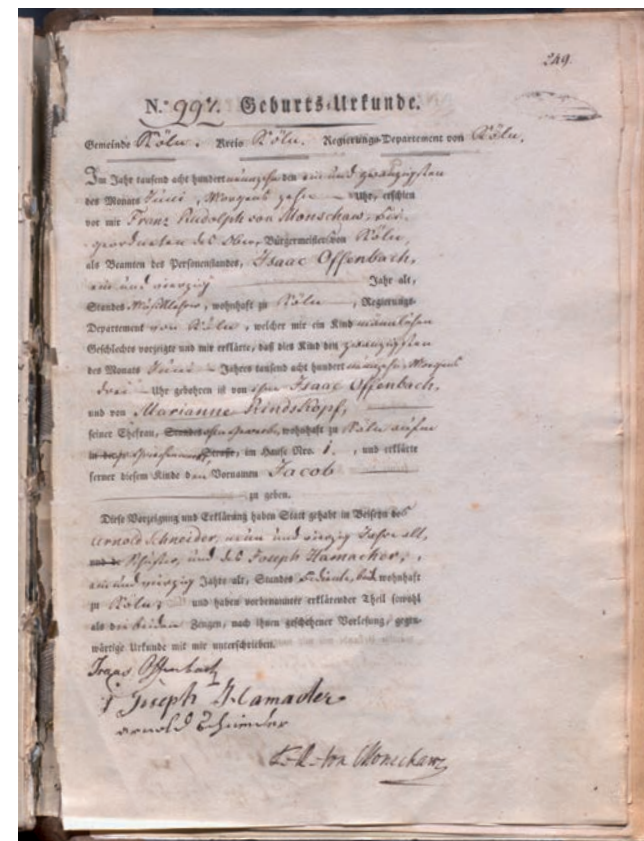 249.
N.º 997. Geburts-Urkunde.
Gemeinde Köln. Kreis Köln. Regierungs-Departement von Köln.
Im Jahr tausend acht hundert neunzehn den ein und zwanzigsten
des Monats Juni, Morgens zehn Uhr, erschien
vor mir Franz Rudolph von Monschaw, Bei-
geordneten des Ober-Bürgermeisters von Köln,
als Beamten des Personenstandes, Isaac Offenbach,
ein und vierzig Jahr alt,
Standes Musiklehrer, wohnhaft zu Köln, Regierungs-
Departement von Köln, welcher mir ein Kind männlichen
Geschlechts vorzeigte und mir erklärte, daß dies Kind den zwanzigsten
des Monats Juni Jahres tausend acht hundert neunzehn Morgens
drei Uhr gebohren ist von ihm Isaac Offenbach,
und von Marianne Rindskopf,
seiner Ehefrau, Standes ohne Gewerb, wohnhaft zu Köln auf'm
in der Griechenmarkt Straße, im Hause Nro. 1., und erklärte
ferner diesem Kinde den Vornamen Jacob
zu geben.
Diese Vorzeigung und Erklärung haben Statt gehabt in Beiseyn des
Arnold Schneider, neun und vierzig Jahre alt,
und de Schuster, und des Joseph Hamacher,
ein und vierzig Jahre alt, Standes beide wohnhaft
zu Köln, und haben vorbenannter erklärender Theil sowohl
als die beiden Zeugen, nach ihnen geschehener Vorlesung, gegen-
wärtige Urkunde mit mir unterschrieben.
Isaac Offenbach
Joseph Hamacher
Arnold Schneider
F. R. von Monschaw